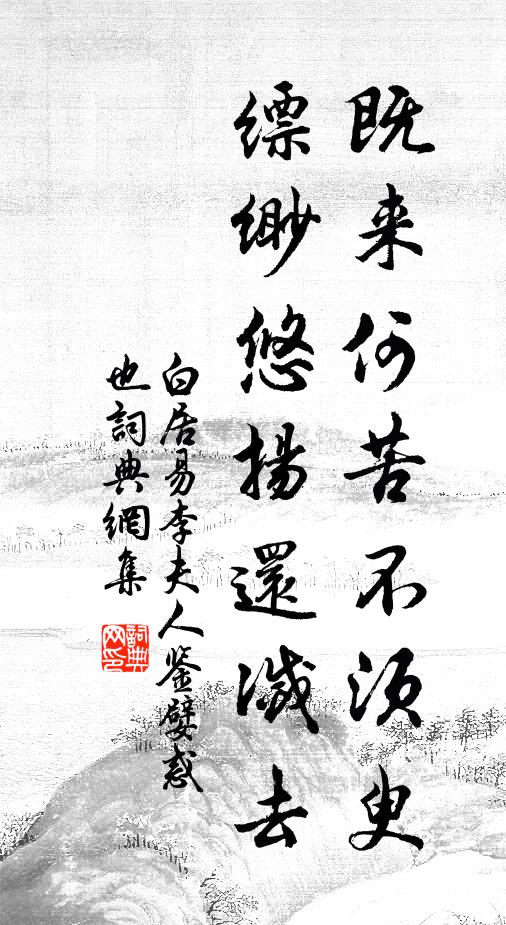 既来何苦不须臾
缥缈悠揚還滅去
白居易李夫人鉴嬖惑
也詞典網集
詞典网印